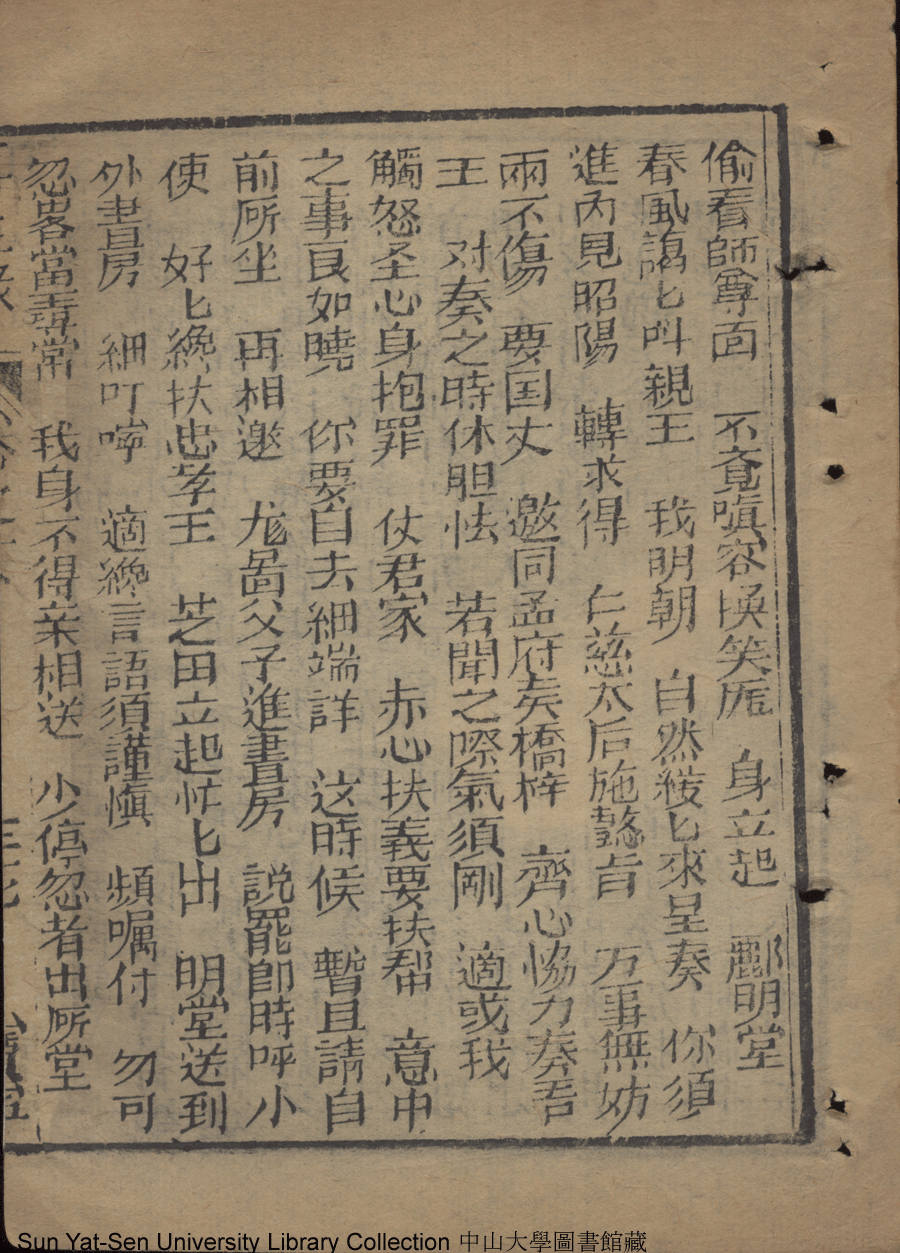 偷看師尊面　不竟嗔容换笑厐　身立起　酈明堂
春風謁匕叫親王　我明朝　自然緩匕來呈奏　你須
進內見昭陽　轉求得　仁慈太后施懿旨　万事無妨
兩不傷　要国丈　邀同孟府矣橋梓　齊心恊力奏吾
王　对奏之時休胆怯　若聞之際氣須剛　適或我
觸怒圣心身抱罪　仗君家　赤心扶義要扶帮　意中
之事良如曉　你要自去細端詳　这時候　暫且請自
前所坐　再相邀　龙啚父子進書房　説罷即時呼小
使　好匕纔扶忠孝王　芝田立起忙匕出　明堂送到
外書房　細叮嚀　適纔言語須謹慎　頻嘱付　勿可
忽畧當尋常　我身不得亲相送　少停忽者出所堂
Sun Yat-Sen University Library Collection 中山大學圖書館藏